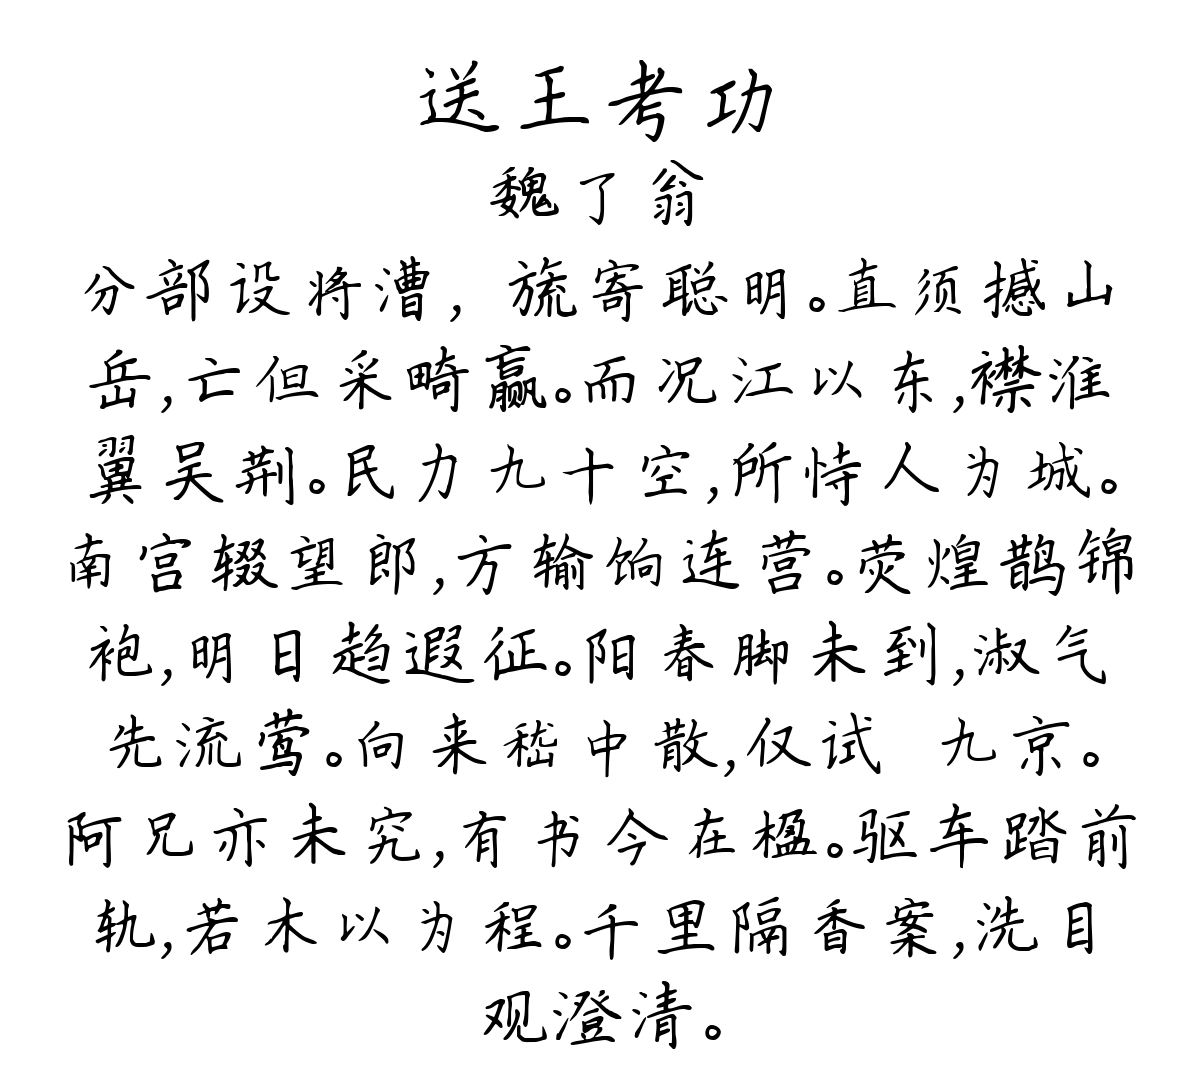 送王考功
魏了翁
分部设将漕，旒寄聪明。直须撼山
岳,亡但采畸赢。而况江以东,襟淮
翼吴荆。民力九十空,所恃人为城。
南宫辍望郎,方输饷连营。荧煌鹊锦
袍,明日趋遐征。阳春脚未到,淑气
先流莺。向来嵇中散,仅试 九京。
阿兄亦未究,有书今在楹。驱车踏前
轨,若木以为程。千里隔香案,洗目
观澄清。